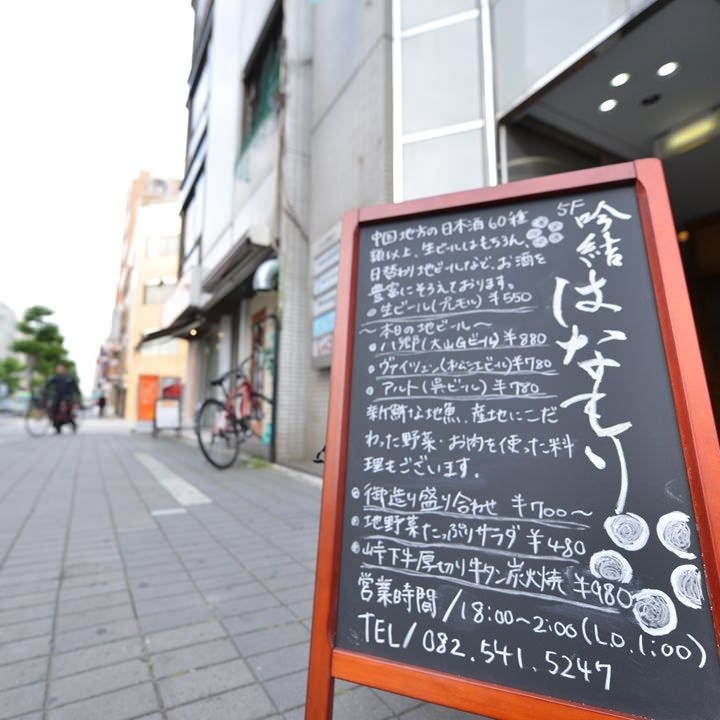 5F
吟結 はなもり
中国地方の日本酒60種
類以上、生ビールはもちろん、
日替わり地ビールなど、お酒を
豊富にそろえております。
生ビール(プレモル) ¥550
〜本日の地ビール〜
八郷(大山Gビール) ¥880
ヴァイツェン(松江ビール) ¥780
アルト(呉ビール) ¥780
新鮮な地魚、産地にこだ
わった野菜・お肉を使った料
理もございます。
御造り盛り合わせ ¥700〜
地野菜たっぷりサラダ ¥480
峠下牛厚切り牛タン炭火焼 ¥980
営業時間/18:00〜2:00(L.O.1:00)
TEL/082.541.5247